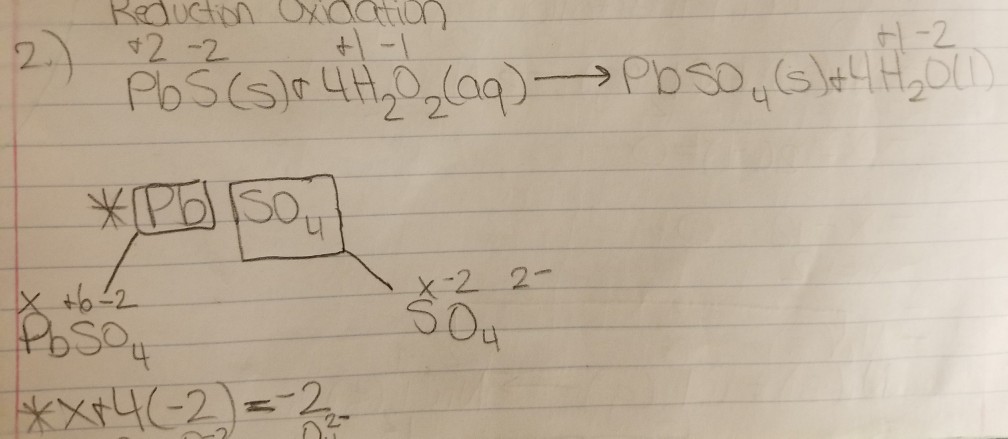 Reduction Oxidation
2.) +2 -2 +1 -1 +1 -2
PbS(s)+4H₂O₂(aq)⟶PbSO₄(s)+4H₂O(l)
*Pb SO₄
x +6 -2 x -2 2-
PbSO₄ SO₄
*x+4(-2)=-2